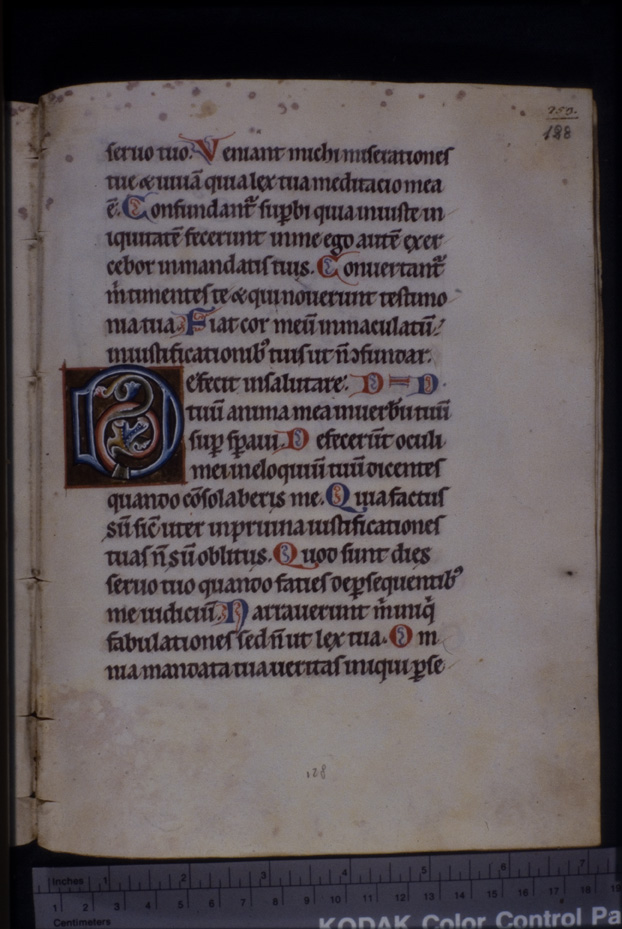 259.
188
seruo tuo. Veniant michi miserationes
tue & uiuā quia lex tua meditacio mea
ē. Confundant᷑ suꝑbi quia iniuste in
iquitatē fecerunt in me ego autē exer
cebor in mandatis tuis. Conuertant᷑
m̄ timentes te & qui nouerunt testimo
nia tua. Fiat cor meū inmaculatū
in iustificationibꝰ tuis ut n̄ ↄfundar.
Defecit in salutare
tuū anima mea in uerbū tuū
suꝑ sꝑaui. Defecerūt oculi
mei in eloquiū tuū dicentes
quando cōsolaberis me. Quia factus
sū sic̄ uter in pruina iustificationes
tuas n̄ sū oblitus. Quod sunt dies
seruo tuo quando facies de ꝑsequentibꝰ
me iudiciū. Narrauerunt m̄ iniq̄
fabulationes sed n̄ ut lex tua. Om
nia mandata tua ueritas iniqui ꝑse
128
Inches 1 2 3 4 5 6 7
1 2 3 4 5 6 7 8 9 10 11 12 13 14 15 16 17 18 19
Centimeters
KODAK Color Control Pa